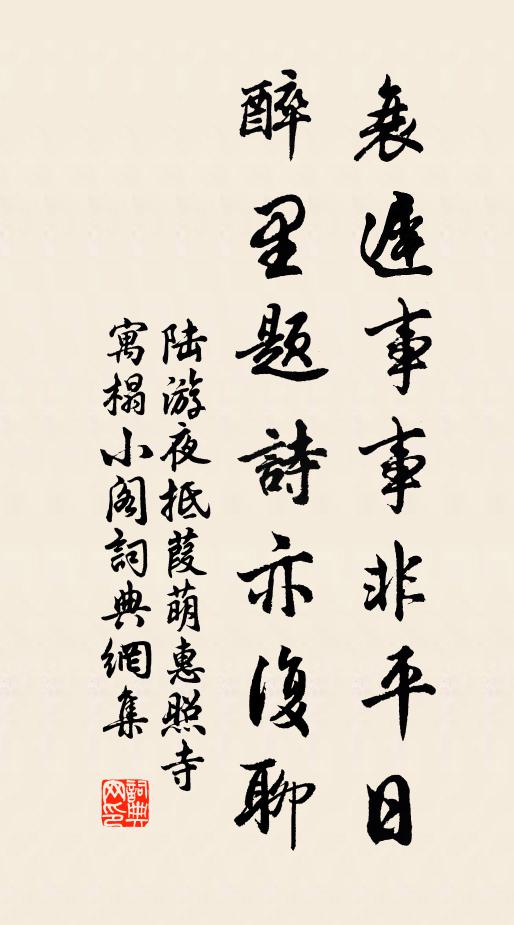 衰遲事事非平日
醉里題詩亦復聊
陆游夜抵葭萌惠照寺
寓榻小阁詞典網集
詞典网印